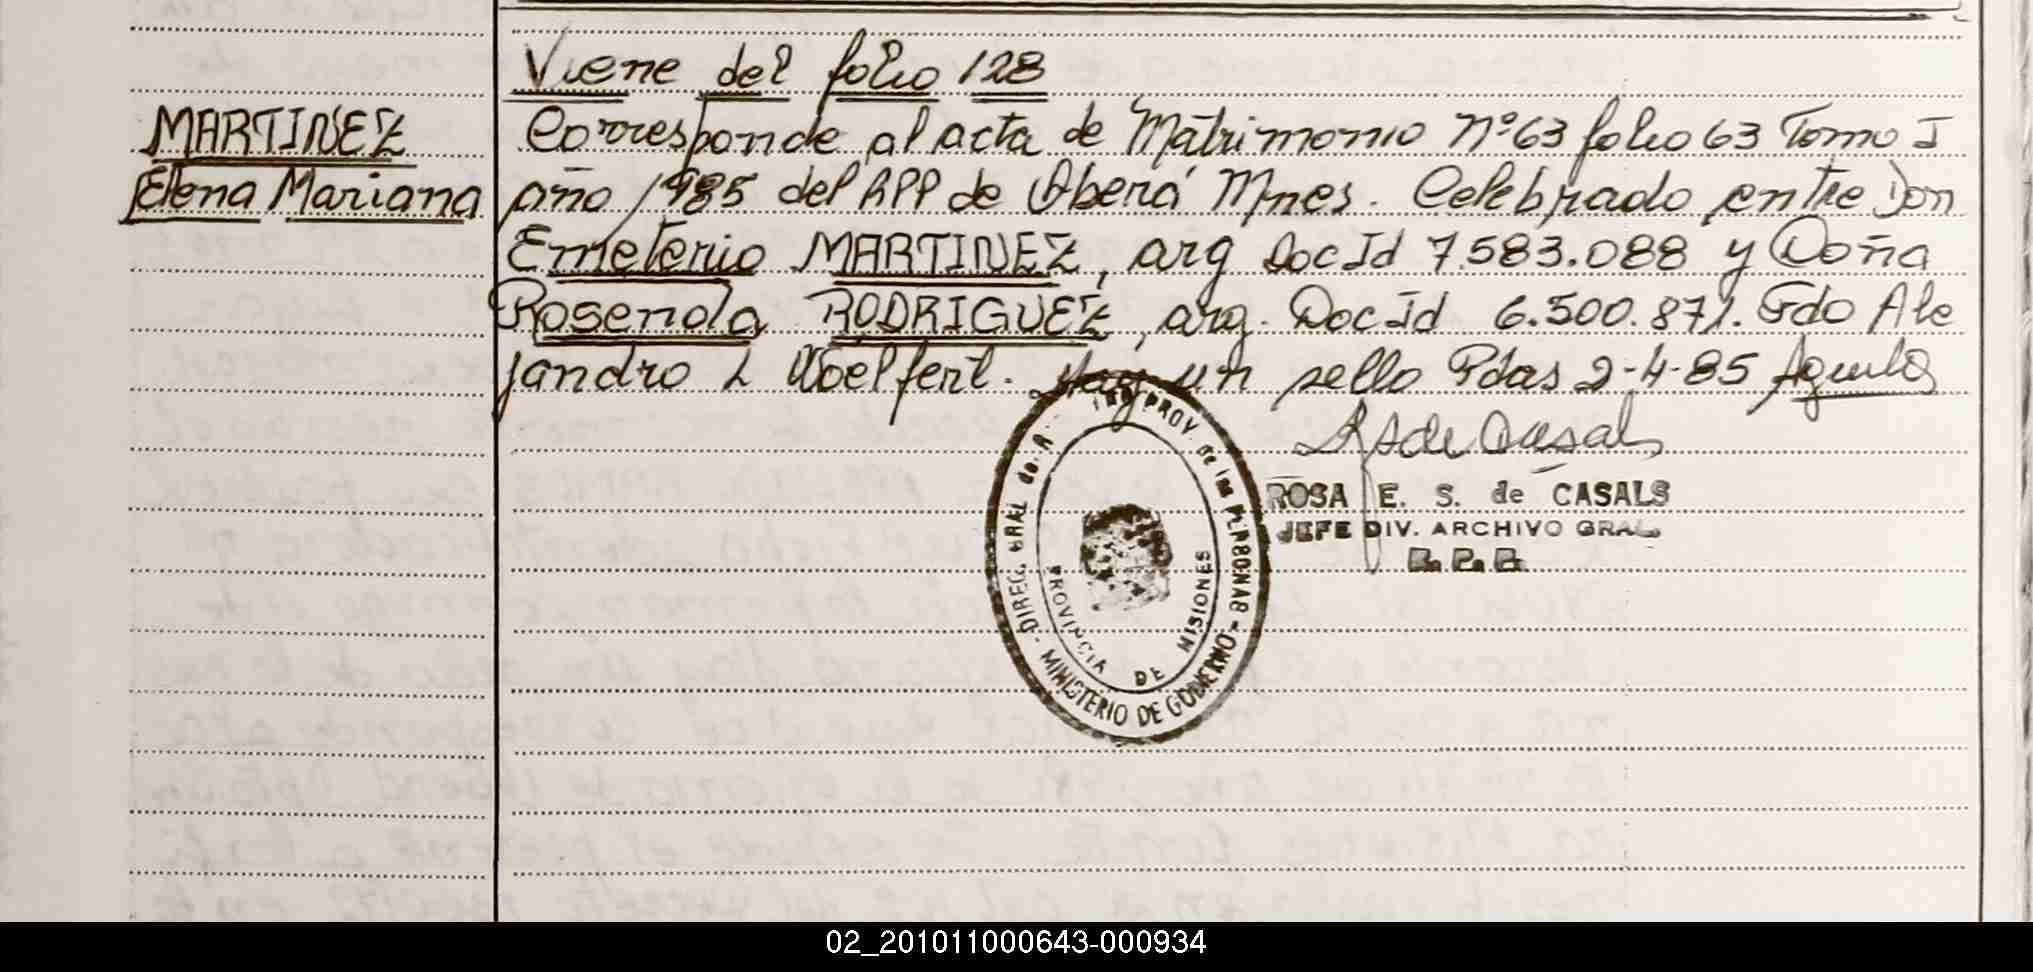 Viene del folio 128
MARTINEZ
Elena Mariana
Corresponde al acta de Matrimonio Nº 63 folio 63 Tomo I
año 1985 del RPP de Oberá Mnes. Celebrado entre Don
Emeterio MARTINEZ, arg Doc Id 7.583.088 y Doña
Rosenda RODRIGUEZ, arg. Doc Id 6.500.871. Fdo Ale
jandro L Woelfert. Hay un sello Pdas 2-4-85 Aguila
RS de Casals
ROSA E. S. de CASALS
JEFE DIV. ARCHIVO GRAL
R. P. P.
DIREC. GRAL de R PROV. de las PERSONAS
MINISTERIO DE GOBIERNO
PROVINCIA DE MISIONES
02_201011000643-000934